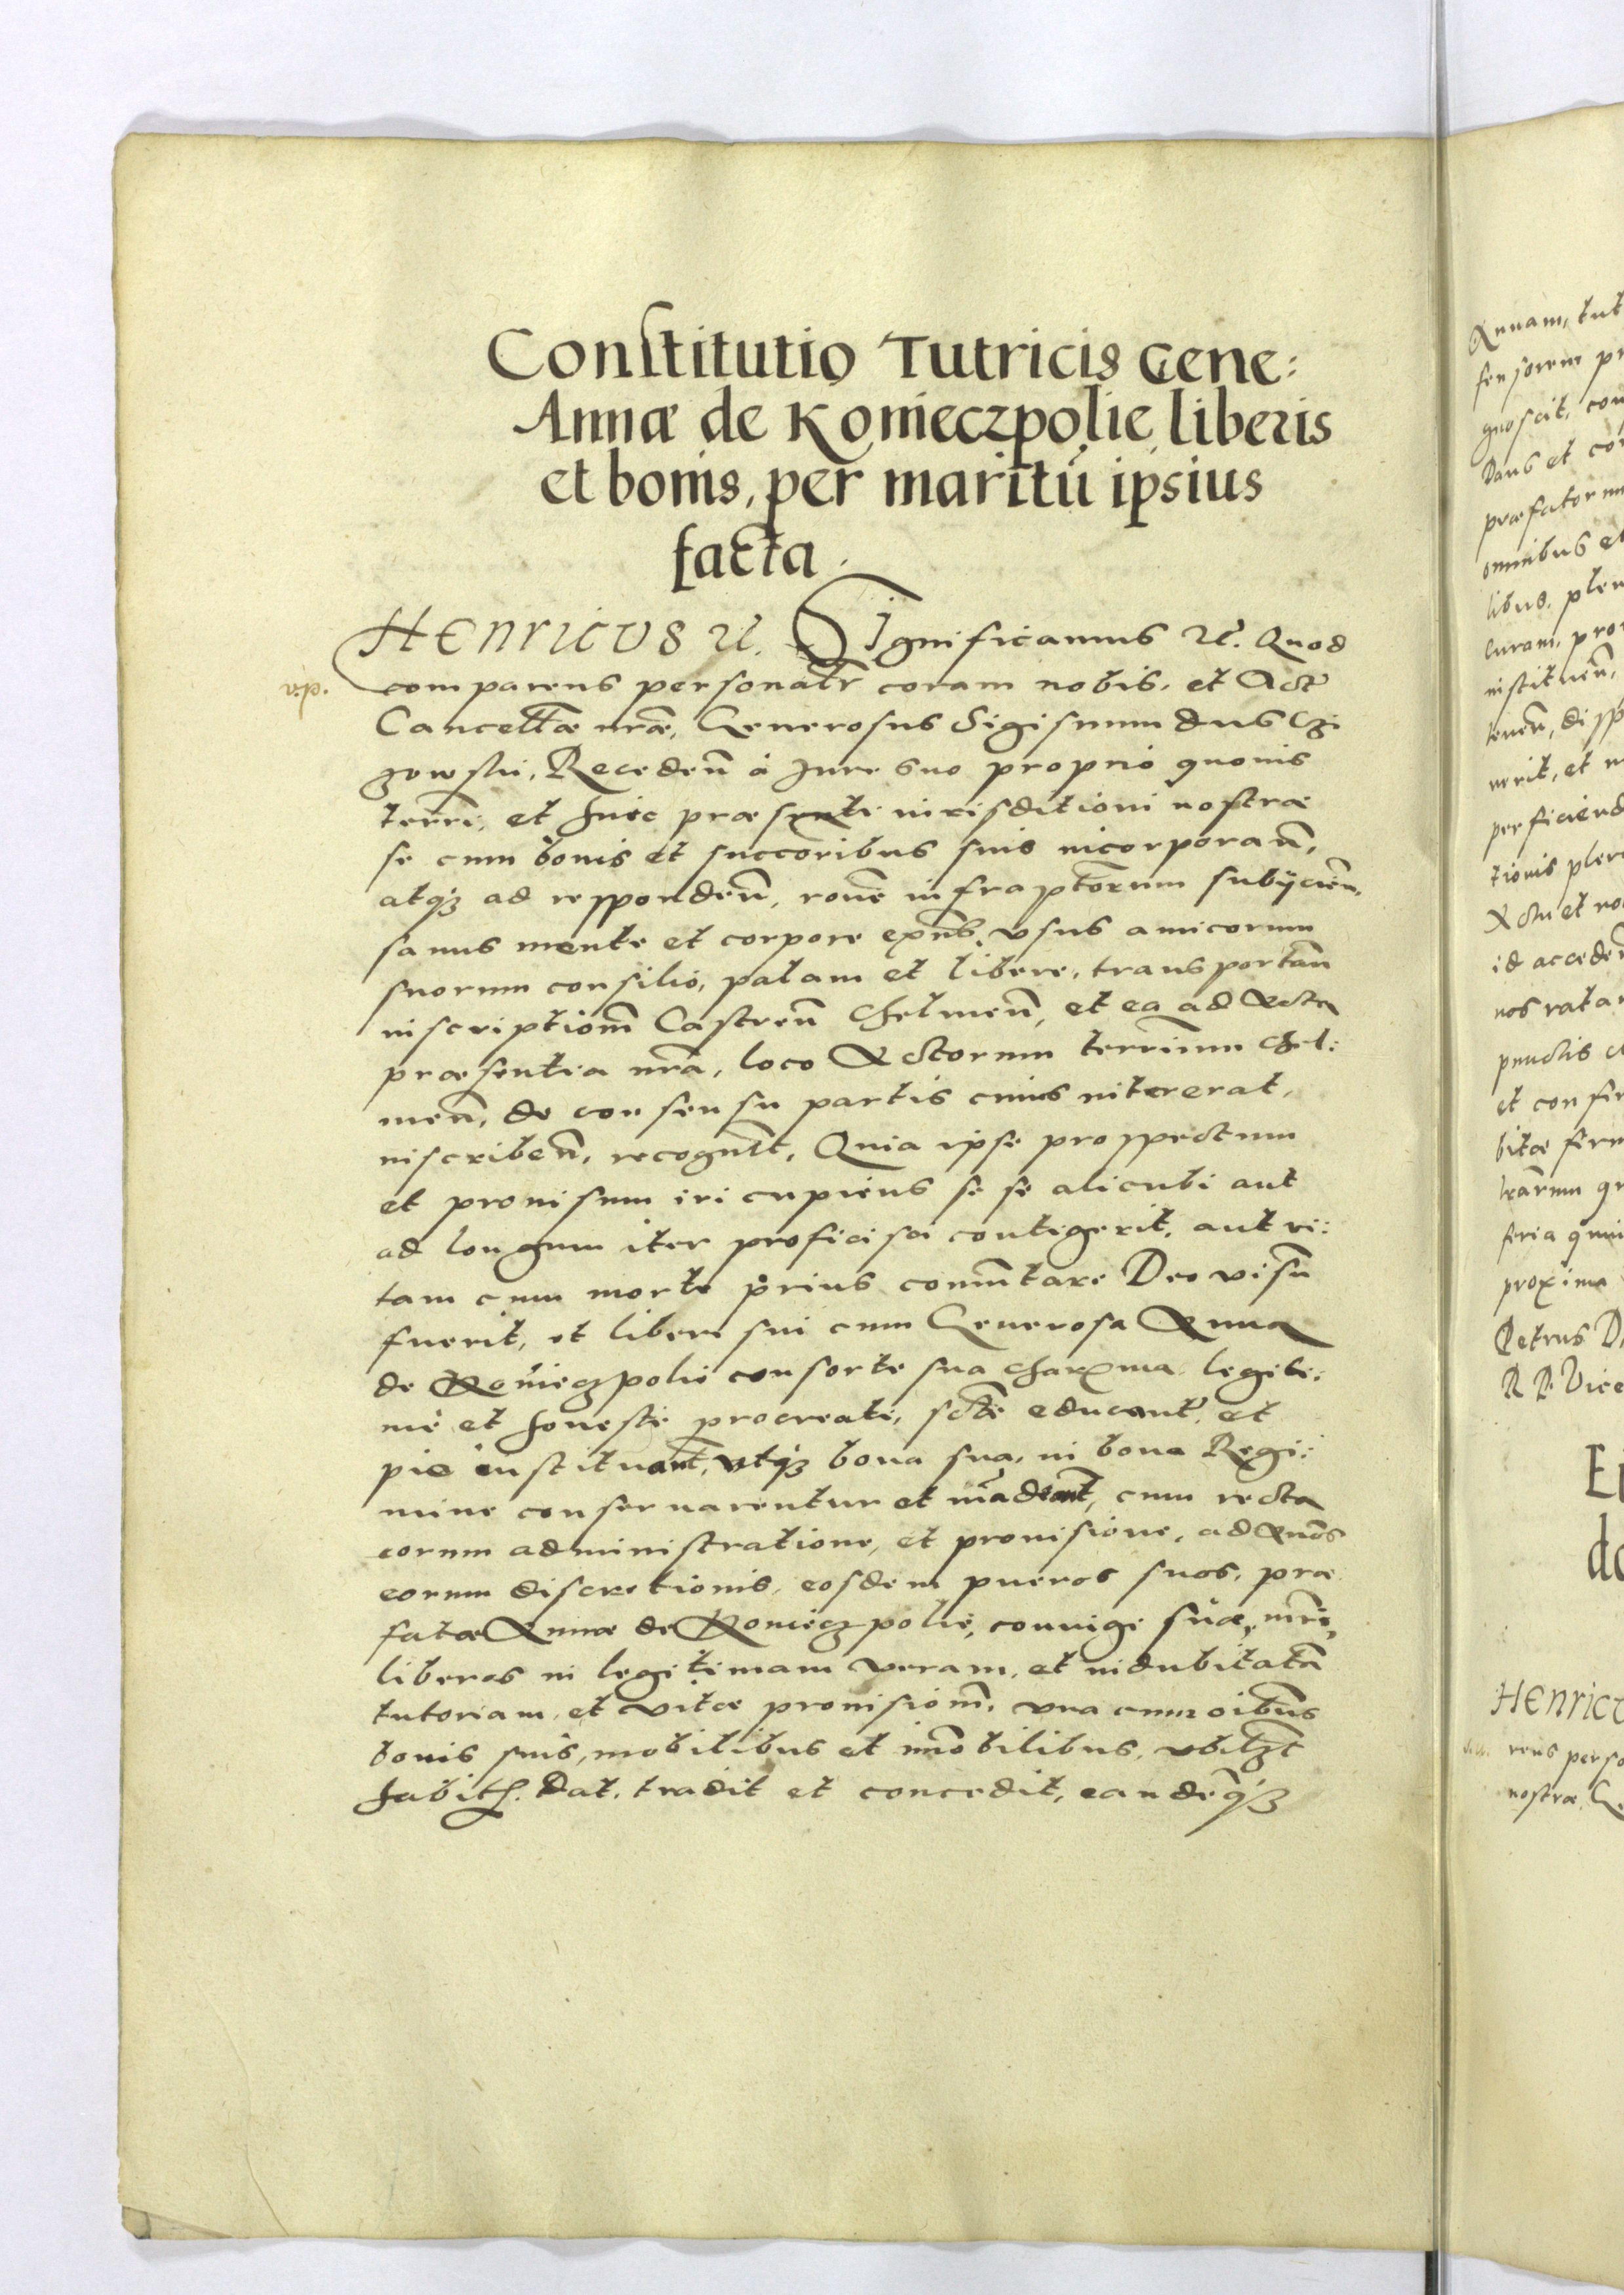 Constitutio Tutricis Gene:
Annæ de Konieczpolie liberis
et bonis, per maritū ipsius
facta.
HENRICUS etc. Significamus etc. Quod
comparens personalr coram nobis, et Act
Cancellæ nræ, Generosus Sigismundus Chi
gowski, Recedeñ à Jure suo proprio quouis
terrri, et huic præsenti iurisditioni nostræ
se cum bonis et succoribus suis incorporañ,
atq3 ad respondeñ, rone infraptorum subÿcieñ,
sanus mente et corpore exñs, vsus amicorum
suorum consilio, palam et libere, transportañ
inscriptionm Castreñ Chelmeñ, et ea ad Acta
præsentia nrã, loco Actorum terrium Chel:
meñ, de consensu partis cuius intererat,
inscribeñ, recognt, Quia ipse prospectum
et prouisum iri cupiens si se alicubi aut
ad longum iter proficisci contigerit, aut vi:
tam cum morte prius comutare Deo visu
fuerit, vt liberi sui cum Generosa Anna
de Koniecz polie consorte sua charma legiti:
mè et honestè procreati, scte educant, et
piè instituant, vtq3 bona sua, in bono Regi:
mine conseruarentur et cum recta
eorum administratione, et prouisione, ad Annos
eorum discretionis, eosdem pueros suos, præ
fatæ Annæ de Koniecz polie, coniugi suæ, mri,
liberos in legitimam veram, et indubitatã
tutoriam, et vitæ prouisionm, vna cum oibus
bonis suis, mobilibus et imobilibus, vbilzt
habit. Dat, tradit et concedit, eandeq3
Annam, tut
fensorem pr
gnoscit, con
Dans et co
præfatorum
omnibus et
libus, plen
curam, pro
instituen,
tenen, disp
uerit, et
perficiend
tionis plen
Actu et ro
id acceden
nos rata
punctis
et confir
bitæ firm
trarum qu
feria quin
proxima
Petrus D
R P. Vice
do
HENRICU
rens perso
nostræ, Ge